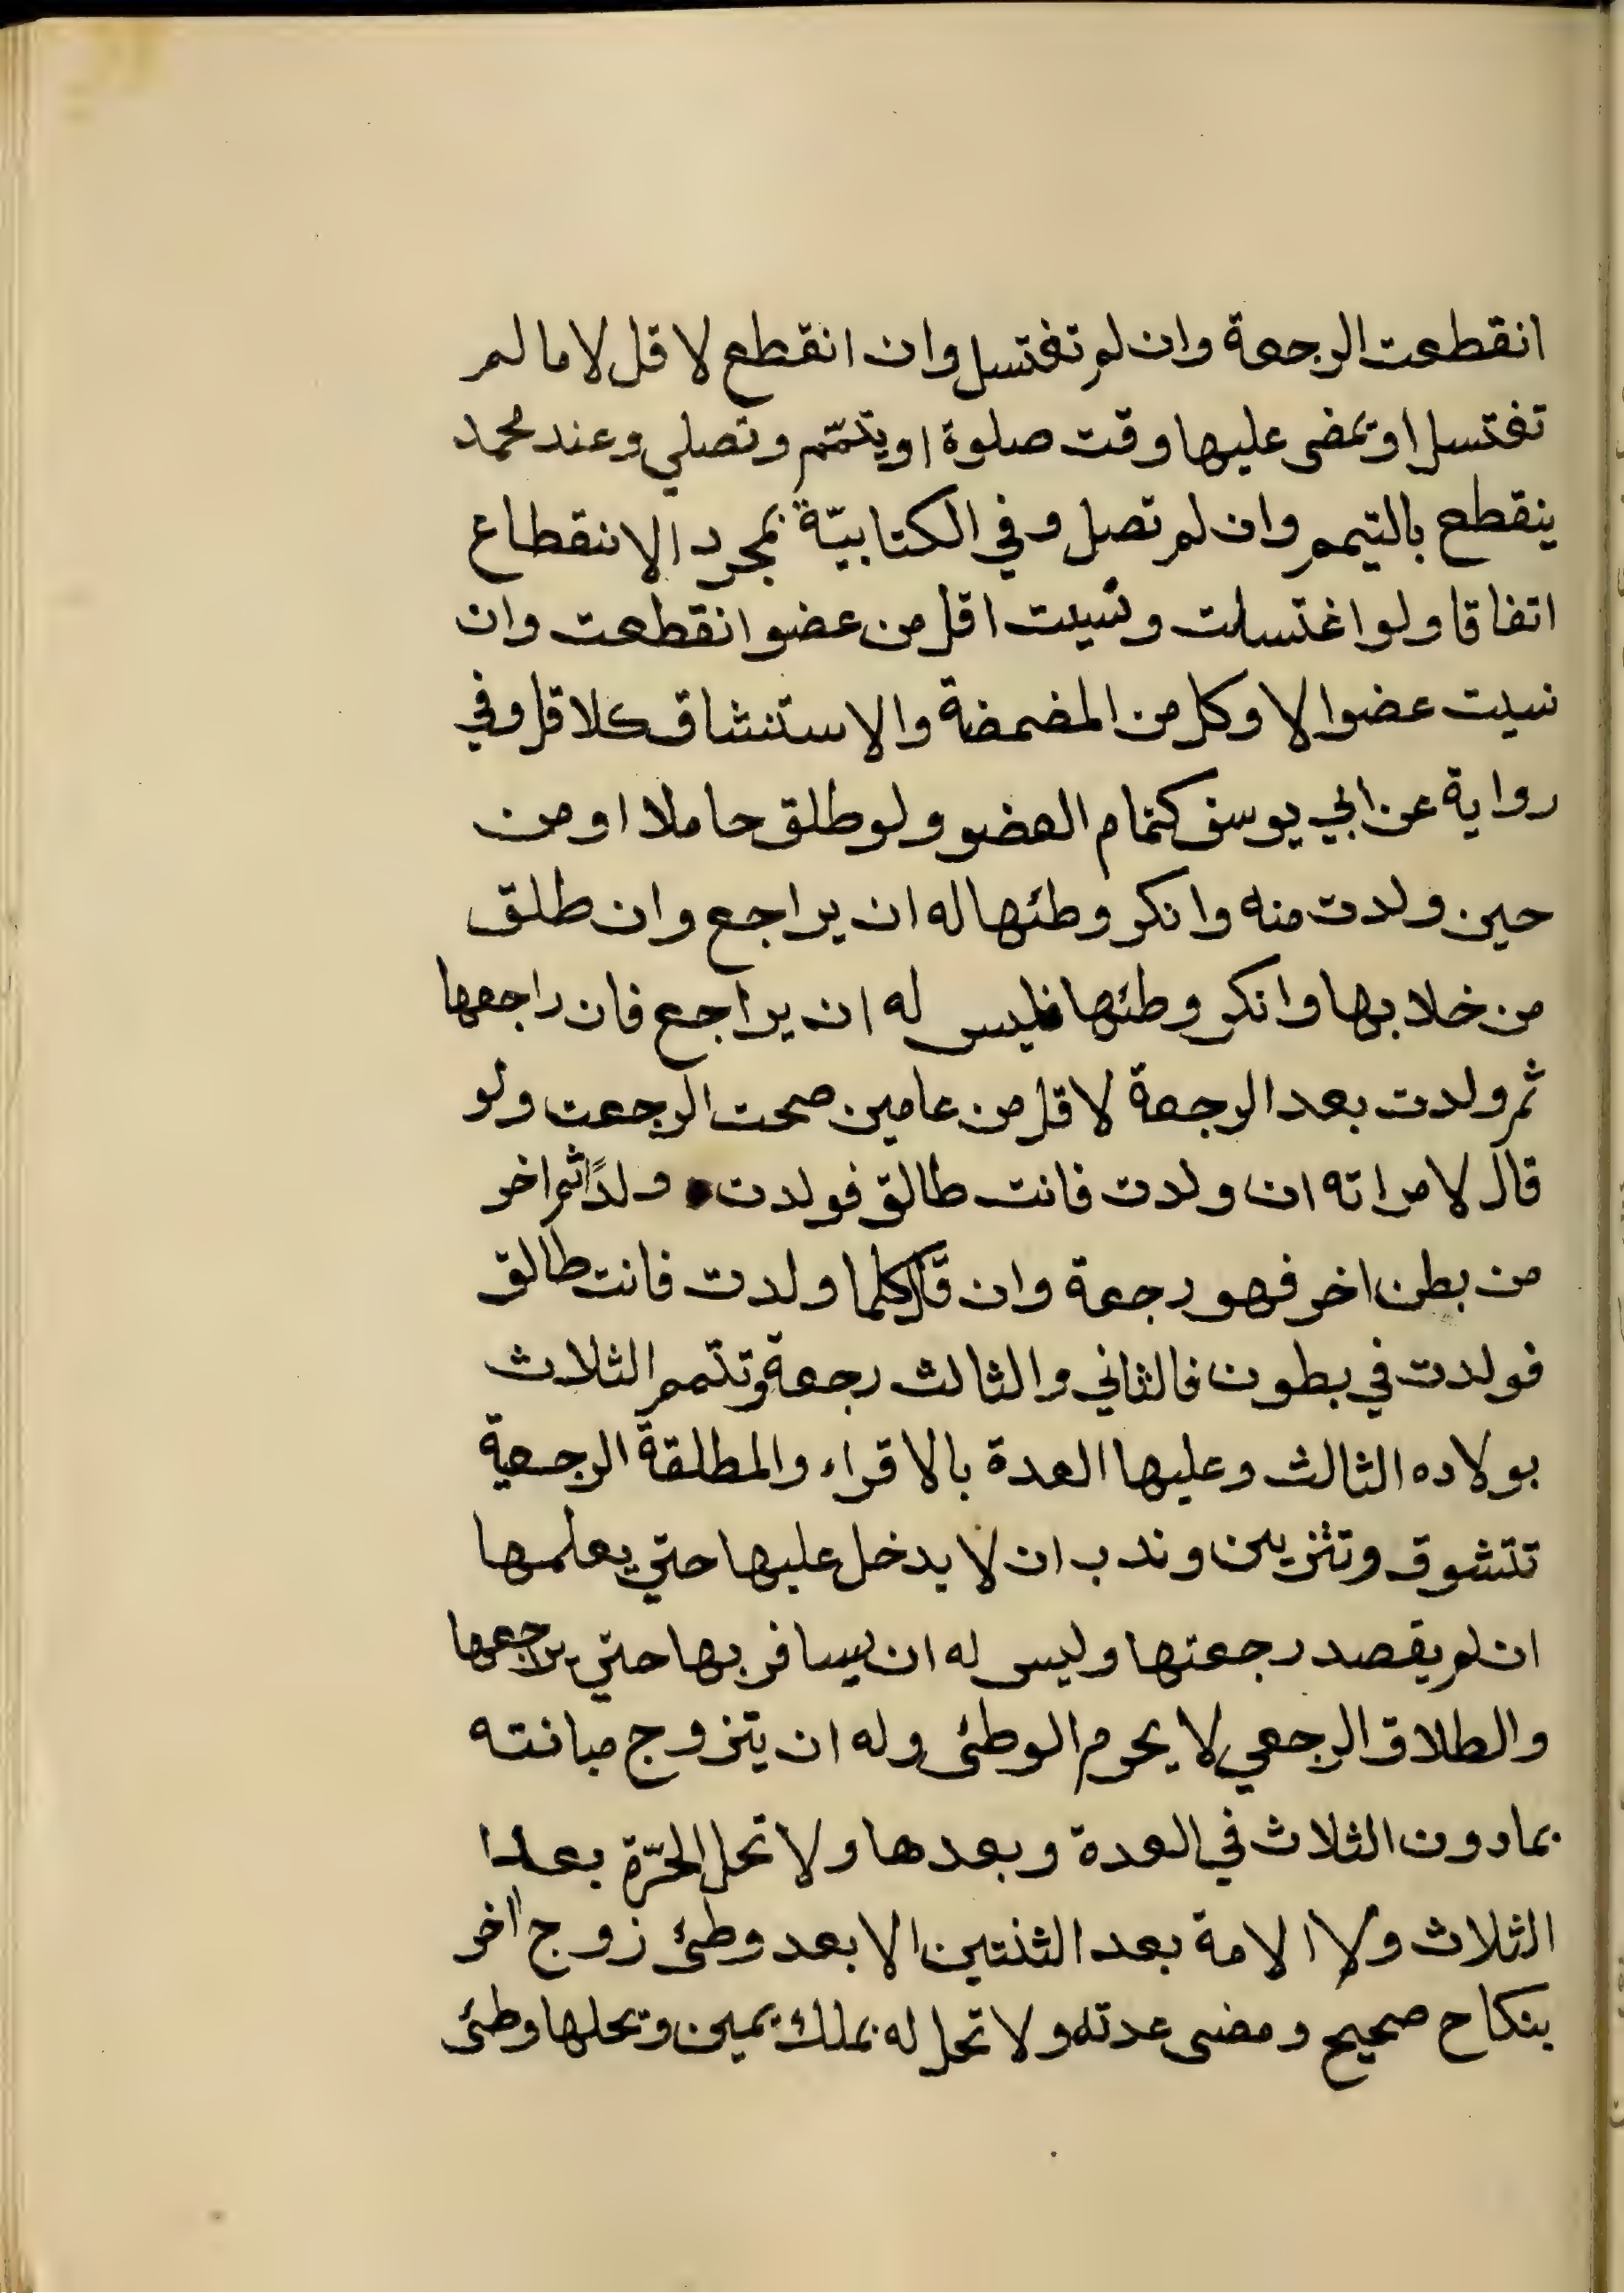 انقطعت الرجعة وان لم تغتسل وان انقطع لاقل لا ما لم
تغتسل او يمضى عليها وقت صلوة او يتمّم وتصلي وعند محمد
ينقطع بالتيمم وان لم تصل وفي الكتابيّة بمجرد الانقطاع
اتفاقا ولو اغتسلت ونسيت اقل من عضو انقطعت وان
نسيت عضوا لا وكل من المضمضة والاستنشاق كلاقل وفي
رواية عن ابي يوسف كتمام العضو ولو طلق حاملا او من
حين ولدت منه وانكر وطئها له ان يراجع وان طلق
من خلا بها وانكر وطئها فليس له ان يراجع فان راجعها
ثم ولدت بعد الرجعة لاقل من عامين صحت الرجعت ولو
قال لامراته ان ولدت فانت طالق فولدت ولدًا ثم اخر
من بطن اخر فهو رجعة وان قال كلما ولدت فانت طالق
فولدت في بطون فالثاني والثالث رجعة وتتمم الثلاث
بولاده الثالث وعليها العدة بالاقراء والمطلقة الرجعية
تتشوق وتتزين وندب ان لا يدخل عليها حتي يعلمها
ان لم يقصد رجعتها وليس له ان يسافر بها حتي يراجعها
والطلاق الرجعي لا يحرم الوطئ وله ان يتزوج مبانته
بما دون الثلاث في العدة وبعدها ولا تحل الحرّة بعد
الثلاث ولا الامة بعد الثنتين الا بعد وطئ زوج اخر
بنكاح صحيح ومضى عدته ولا تحل له بملك يمين ويحلها وطئ